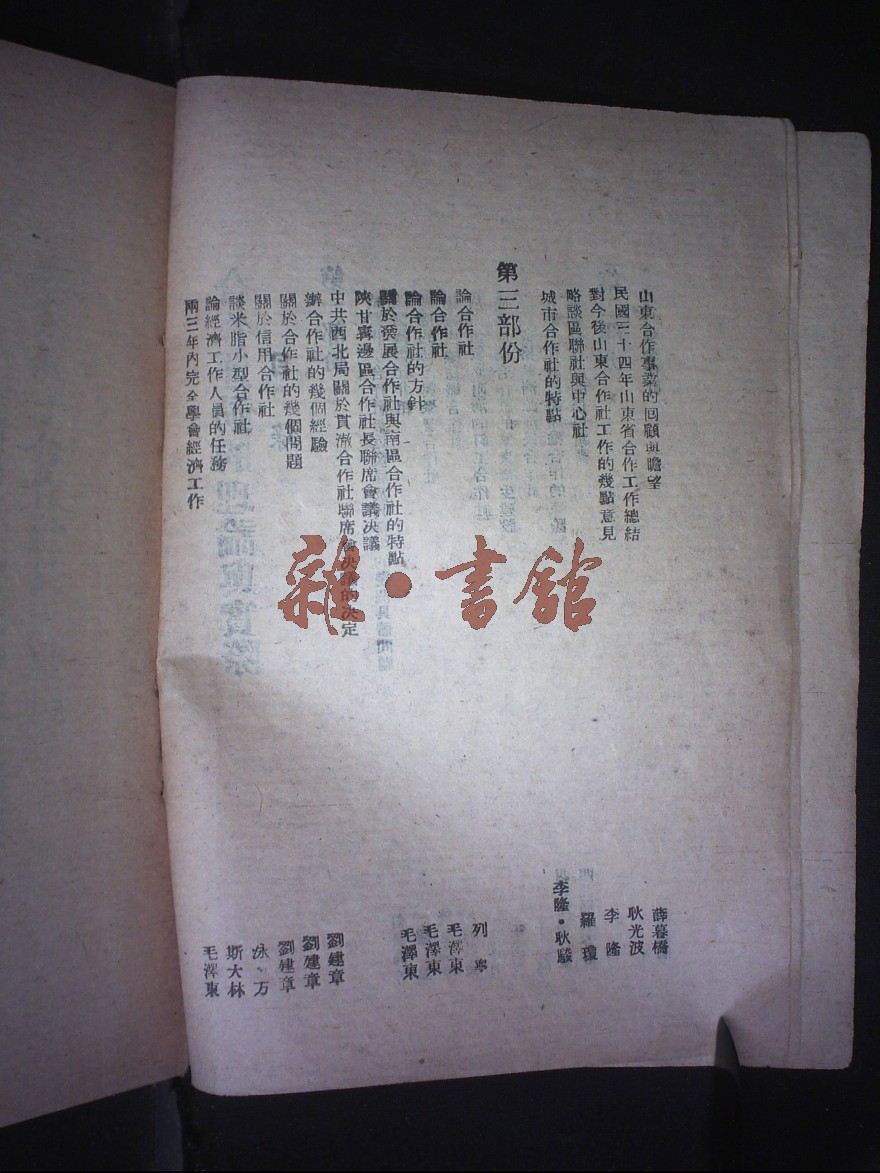 山東合作事業的回顧與瞻望 薛暮橋
民國三十四年山東省合作工作總結 耿光波
對今後山東合作社工作的幾點意見 李隆
略談區聯社與中心社 羅瓊
城市合作社的特點 李隆・耿駿
第三部份
論合作社 列寧
論合作社 毛澤東
論合作社的方針 毛澤東
關於發展合作社與南區合作社的特點 毛澤東
陝甘寧邊區合作社長聯席會議決議
中共西北局關於貫澈合作社聯席會決議的決定
辦合作社的幾個經驗 劉建章
關於合作社的幾個問題 劉建章
關於信用合作社 劉建章
談米脂小型合作社 泳、万
論經濟工作人員的任務 斯大林
兩三年內完全學會經濟工作 毛澤東
雜・書館